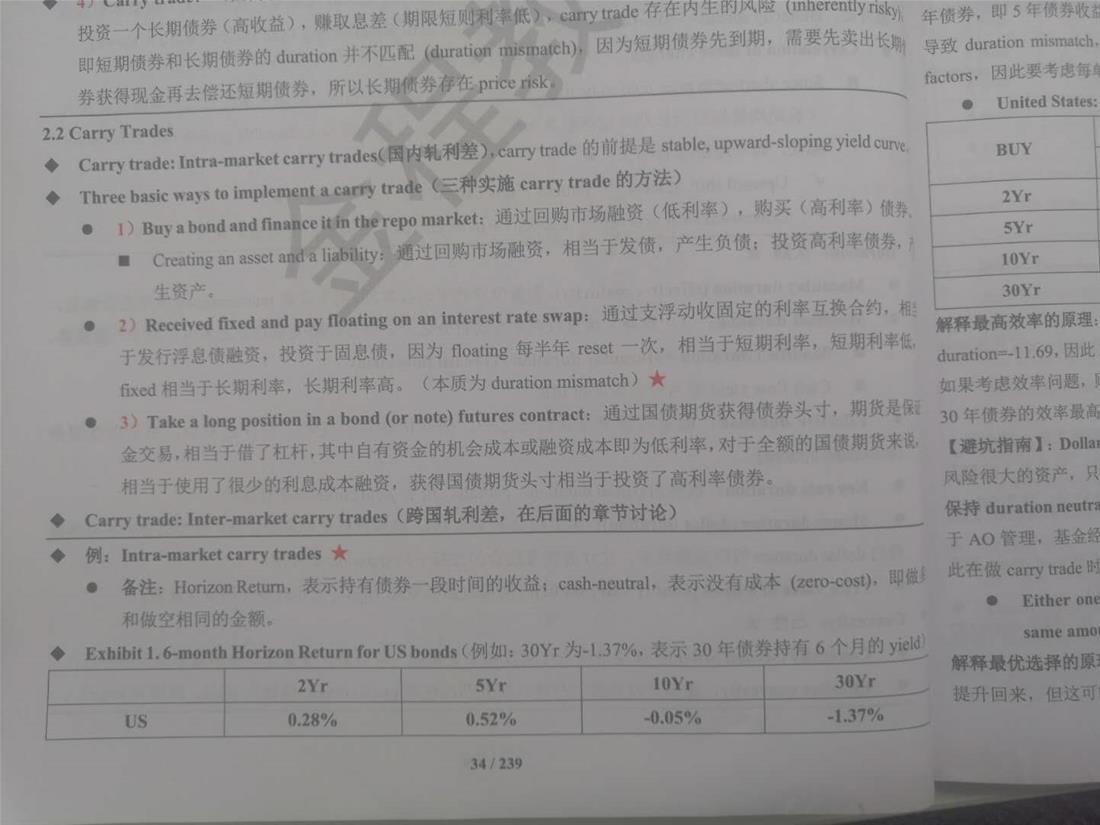 4) Carry trade:
投资一个长期债券（高收益），赚取息差（期限短则利率低），carry trade 存在内生的风险 (inherently risky)
即短期债券和长期债券的 duration 并不匹配 (duration mismatch)，因为短期债券先到期，需要先卖出长期
券获得现金再去偿还短期债券，所以长期债券存在 price risk。
2.2 Carry Trades
◆ Carry trade: Intra-market carry trades(国内轧利差), carry trade 的前提是 stable, upward-sloping yield curve.
◆ Three basic ways to implement a carry trade（三种实施 carry trade 的方法）
● 1）Buy a bond and finance it in the repo market：通过回购市场融资（低利率），购买（高利率）债券。
■ Creating an asset and a liability：通过回购市场融资，相当于发债，产生负债；投资高利率债券，
生资产。
● 2）Received fixed and pay floating on an interest rate swap：通过支浮动收固定的利率互换合约，相
于发行浮息债融资，投资于固息债，因为 floating 每半年 reset 一次，相当于短期利率，短期利率低，
fixed 相当于长期利率，长期利率高。（本质为 duration mismatch）★
● 3）Take a long position in a bond (or note) futures contract：通过国债期货获得债券头寸，期货是保证
金交易，相当于借了杠杆，其中自有资金的机会成本或融资成本即为低利率，对于全额的国债期货来说，
相当于使用了很少的利息成本融资，获得国债期货头寸相当于投资了高利率债券。
◆ Carry trade: Inter-market carry trades（跨国轧利差，在后面的章节讨论）
◆ 例：Intra-market carry trades ★
● 备注：Horizon Return，表示持有债券一段时间的收益；cash-neutral，表示没有成本 (zero-cost)，即做
和做空相同的金额。
◆ Exhibit 1. 6-month Horizon Return for US bonds（例如：30Yr 为-1.37%，表示 30 年债券持有 6 个月的 yield）
2Yr 5Yr 10Yr 30Yr
US 0.28% 0.52% -0.05% -1.37%
34 / 239
金程教
年债券，即 5 年债券收益
导致 duration mismatch，
factors，因此要考虑每单
● United States:
BUY
2Yr
5Yr
10Yr
30Yr
解释最高效率的原理：
duration=-11.69，因此
如果考虑效率问题，
30 年债券的效率最高
【避坑指南】：Dollar
风险很大的资产，只
保持 duration neutra
于 AO 管理，基金经
此在做 carry trade 时
● Either one
same amou
解释最优选择的原理
提升回来，但这可